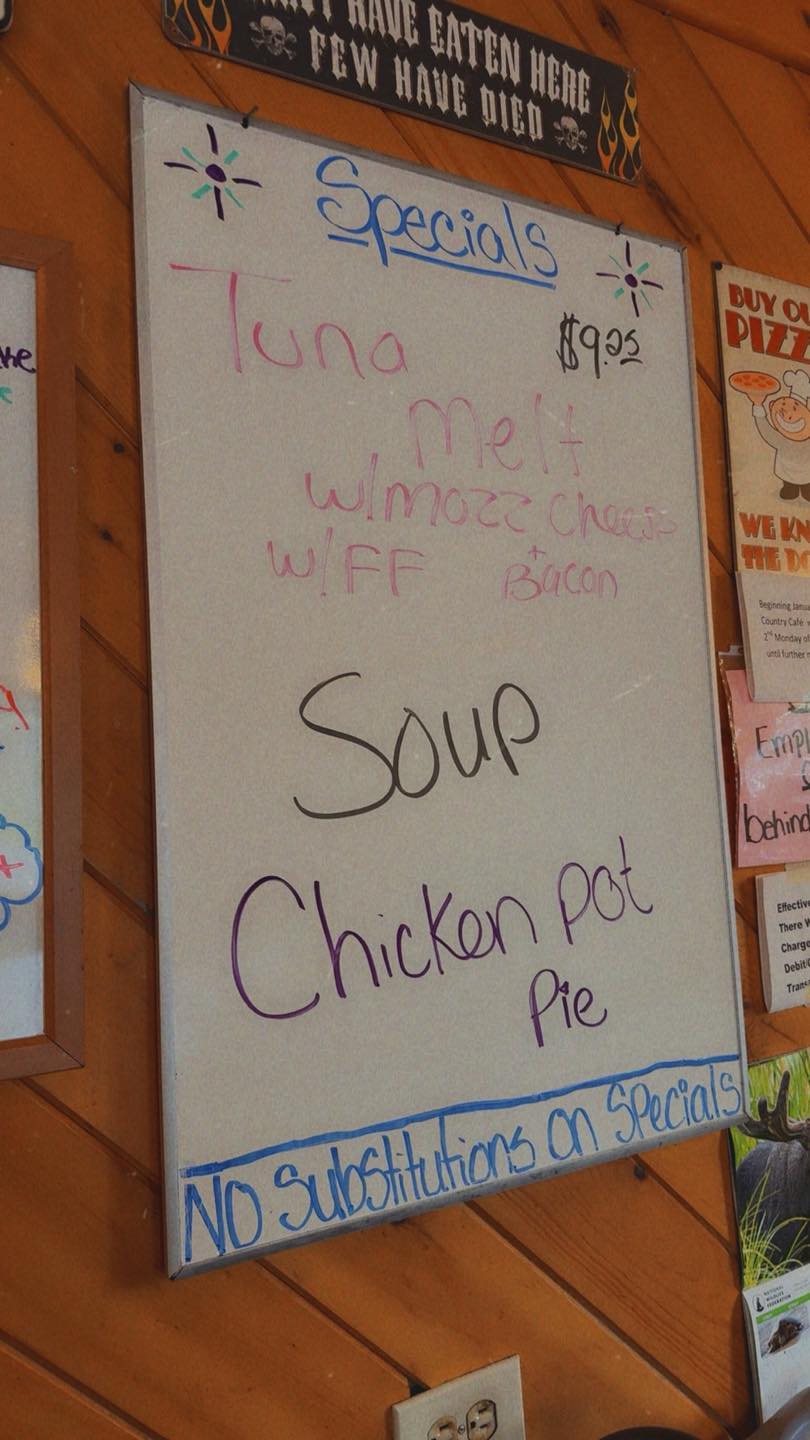 HAVE EATEN HERE
FEW HAVE DIED
Specials
Tuna $9.25
Melt
w/mozz Cheese
w/FF + Bacon
Soup
Chicken Pot
Pie
No Substitutions on Specials
BUY OU
PIZZ
WE KN
THE DO
Beginning Janua
Country Café w
2nd Monday of
until further n
Empl
behind
Effective
There W
Charge
Debit/C
Trans
NATIONAL
WILDLIFE
FEDERATION